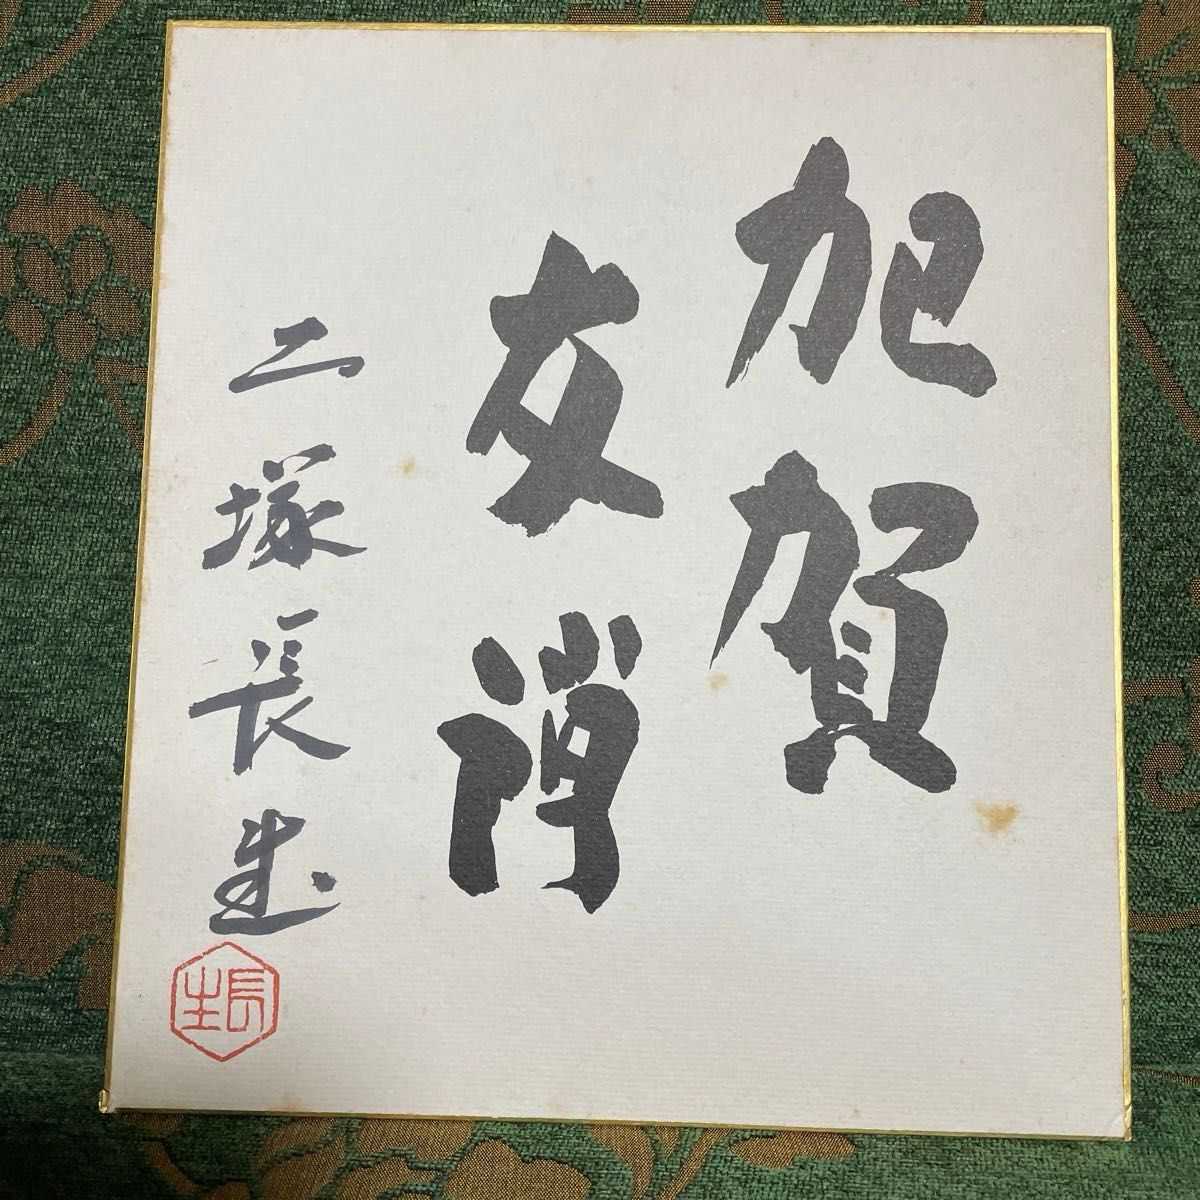 加賀
友禅
二塚長生
長生